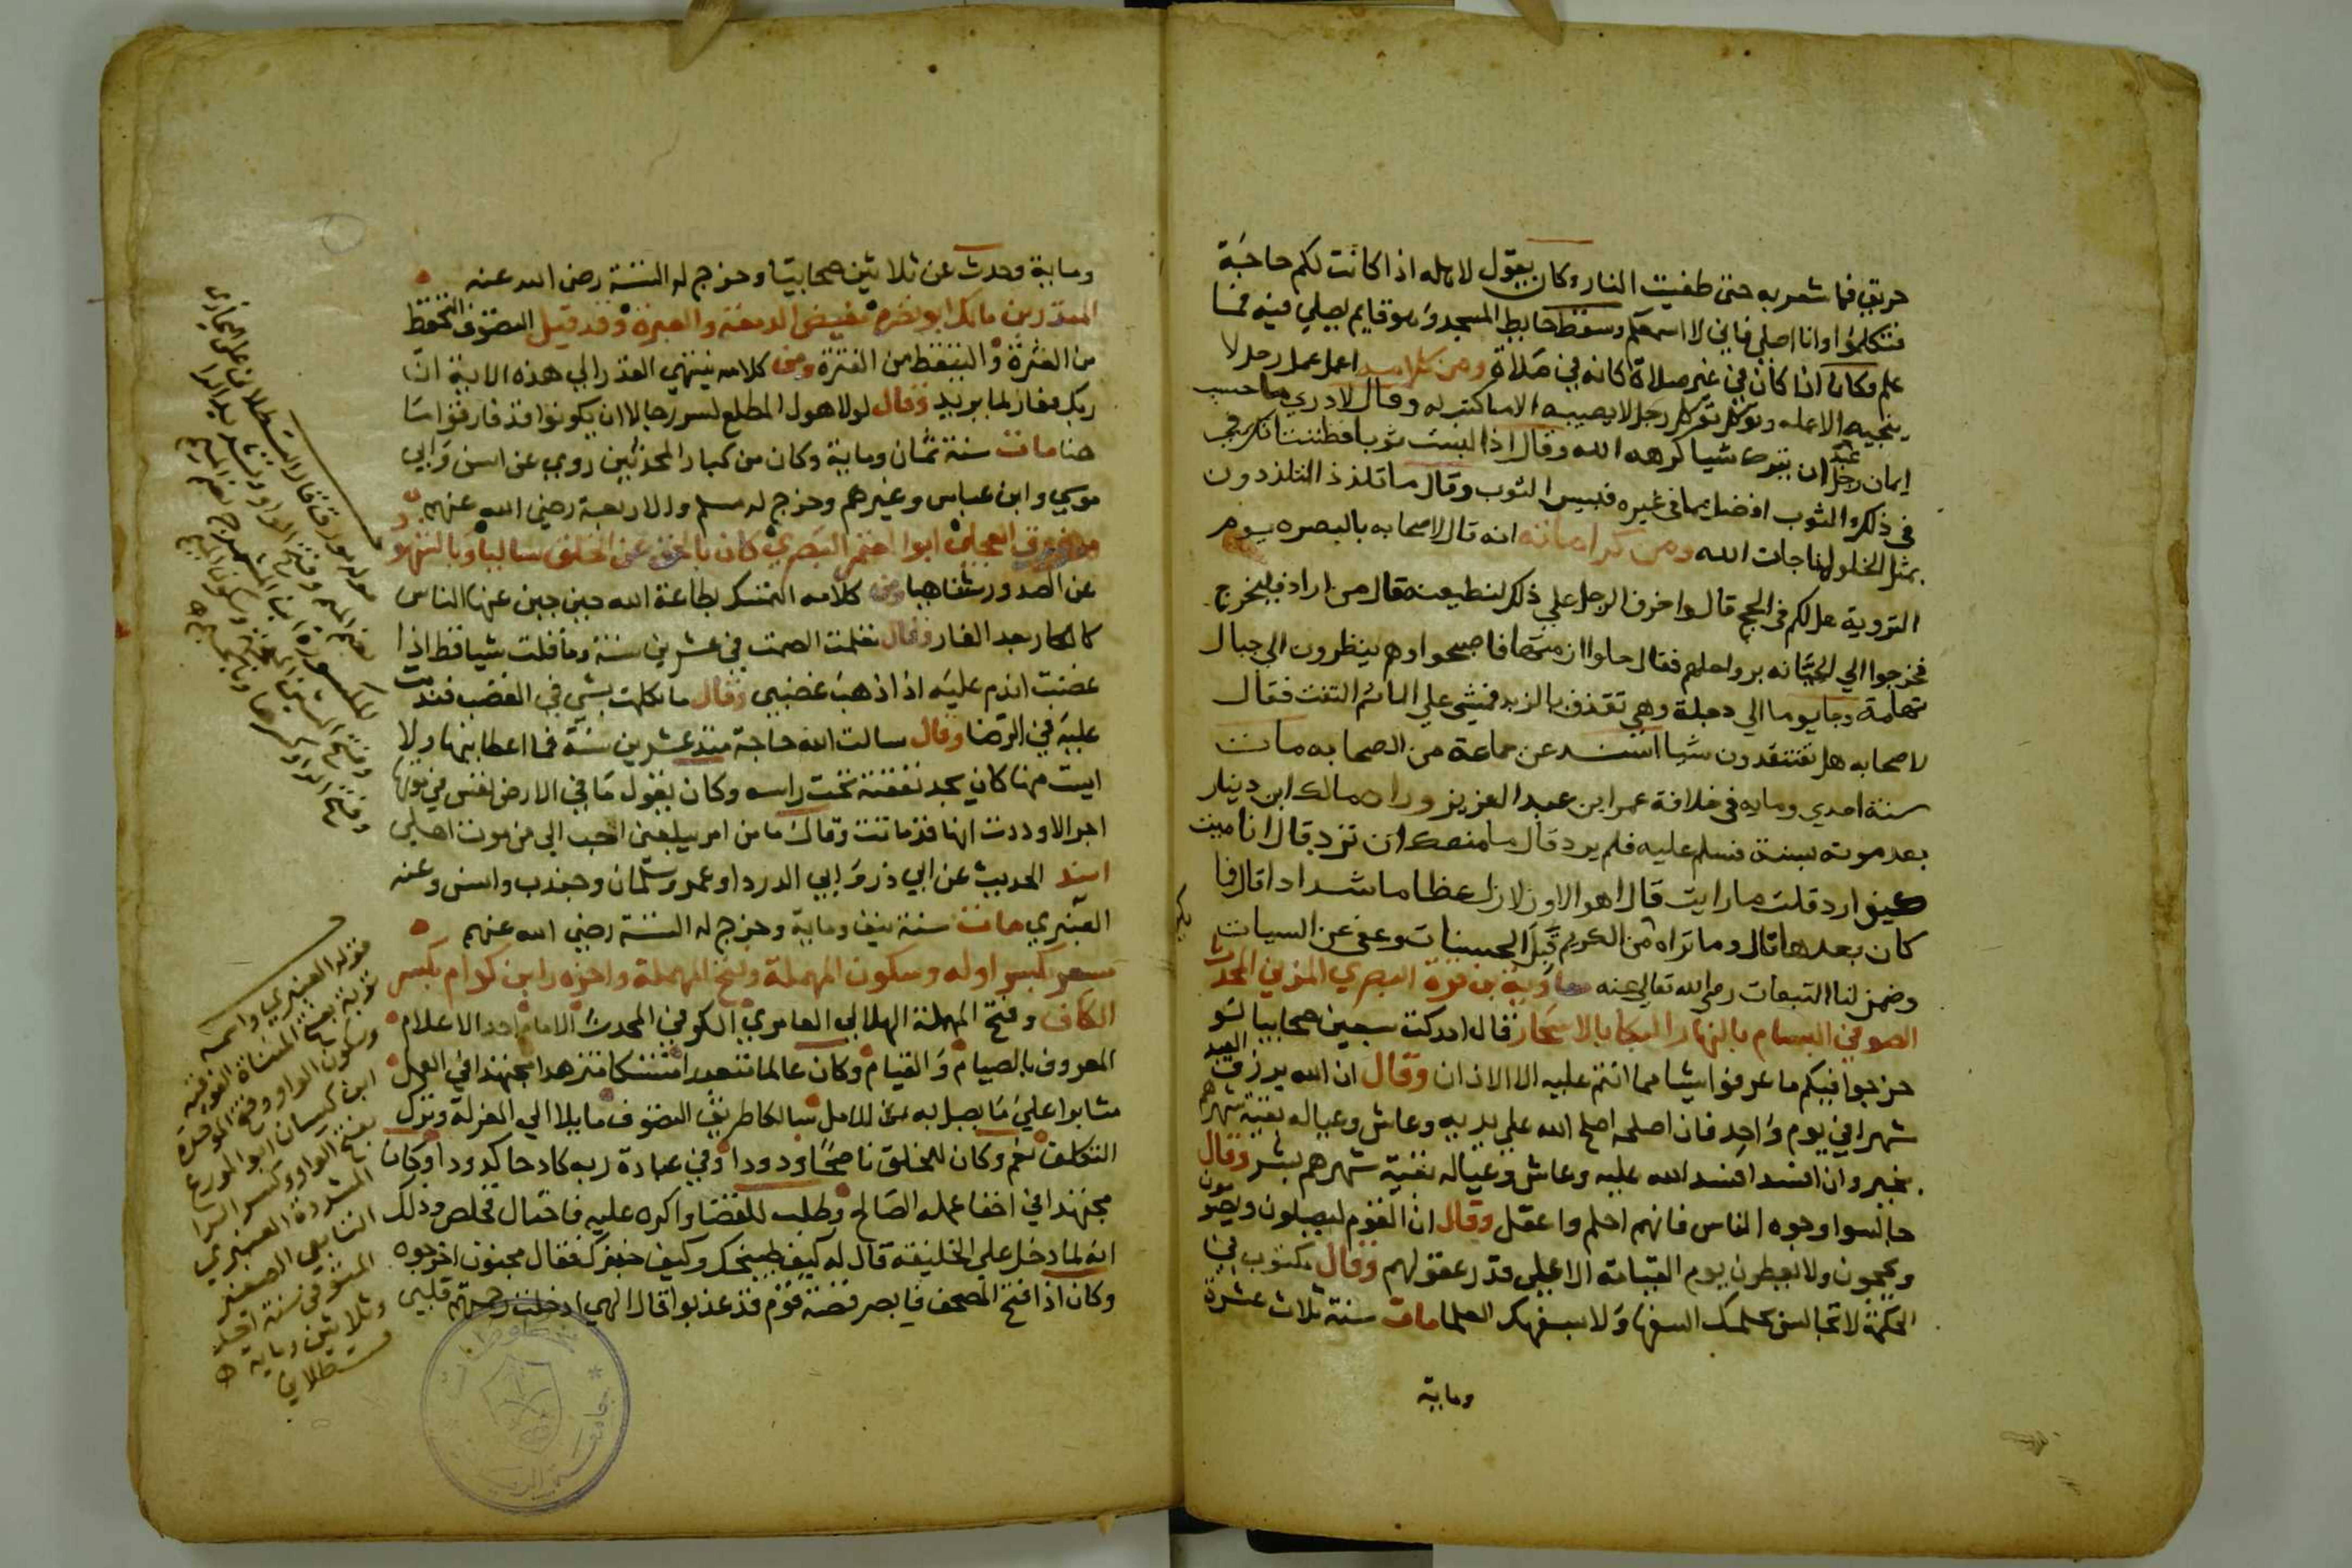 حريق فما شعر به حتى طفيت النار وكان يقول لاهله اذا كانت لكم حاجة
فتكلموا وانا اصلي فاني لا اسمعكم وسقط حايط المسجد وهو قايم يصلي فيه فما
علم وكان اذا كان في غير صلاة كانه في صلاة ومن كلامه اعمل عمل رجل لا
ينجيه الا عمله وتوكل توكل رجل لا يصيبه الا ما كتب له وقال لا دري ما حسب
ايمان رجل عبد ان يترك شيا كرهه الله وقال اذا لبست ثوبا فظننت انك في
في ذلك الثوب افضل مما في غيره فبيس الثوب وقال ما تلذذ المتلذذون
بمثل الخلو لمناجات الله ومن كراماته انه قال لاصحابه بالبصره يوم
التروية هل لكم في الحج قالوا خرف الرجل علي ذلك لنطيعنه قال من اراد فليخرج
فخرجوا الي الجبانه برواحلهم فقال حلوا ازمتها فاصبحوا وهم ينظرون الي جبال
تهامة وجا يوما الي دجلة وهي تقذف بالزبد فمشي علي الما ثم التفت فقال
لاصحابه هل تفتقدون شيا اسند عن جماعة من الصحابه مات
سنة احدي ومايه في خلافة عمر ابن عبد العزيز وراه مالك ابن دينار
بعد موته بسنة فسلم عليه فلم يرد قال ما منعك ان ترد قال انا ميت
كيف ارد قلت ما رايت قال اهوالا وزلازل عظاما شدادا قال فا
كان بعدها قال وما تراه من الكريم قبل الحسنات وعفي عن السيات
وضمن لنا التبعات رضي الله تعالي عنه معاوية بن قرة البصري المزني المحدث
الصوفي البسام بالنهار البكا بالاسحار قال ادركت سبعين صحابيا لو
خرجوا فيكم ما عرفوا شيا مما انتم عليه الا الاذان وقال ان الله يرزق العبد
شهرا في يوم واحد فان اصلحه اصلح الله علي يديه وعاش وعياله بقية شهرهم
بخير وان افسد افسد الله عليه وعاش وعياله بقية شهرهم بشر وقال
جالسوا وجوه الناس فانهم احلم واعقل وقال ان القوم ليصلون ويصومون
ويحجون ولا يعطون يوم القيامة الا علي قدر عقولهم وقال مكتوب في
الحكمة لا تجالس بحلمك السفها ولا بسفهك العلما مات سنة ثلاث عشرة
وماية
وماية وحدث عن ثلاثين صحابيا وخرج له الستة رضي الله عنه
المنذر بن مالك ابو نضرة مفيض الدمعة والعبرة وقد قيل التصوف التحفظ
من العثرة والتيقظ من الفترة ومن كلامه ينتهي القدر الي هذه الاية ان
ربك فعال لما يريد وقال لولا هول المطلع لسر رجالا ان يكونوا قد فارقوا ما
هنا مات سنة ثمان وماية وكان من كبار المحدثين روي عن انس وابي
موسي وابن عباس وغيرهم وخرج له مسلم والاربعة رضي الله عنهم
مورق العجلي ابو المعتمر البصري كان بالحق عن الخلق ساليا وبالتهو
عن الصدور شفا هبا ومن كلامه المتمسك بطاعة الله حين جبن عنها الناس
كالكار بعد الفار وقال تعلمت الصمت في عشرين سنة وما قلت شيا قط اذا
غضبت اندم عليه اذا ذهب غضبي وقال ما تكلمت بشي في الغضب فندمت
عليه في الرضا وقال سالت الله حاجة منذ عشرين سنة فما اعطانيها ولا
ايست منها كان يجد نفقته تحت راسه وكان يقول ما في الارض نفس في موتها
اجر الا وددت انها قد ماتت وقال ما من امر يبلغني احب الي من موت اهلي
اسند الحديث عن ابي ذر وابي الدردا وعمر وسلمان وجندب وانس وعنه
العنبري مات سنة نيف وماية وخرج له الستة رضي الله عنهم
مسعر بكسر اوله وسكون المهملة وفتح المهملة واخره را بن كدام بكسر
الكاف وفتح المهملة الهلالي العامري الكوفي المحدث الامام احد الاعلام
المعروف بالصيام والقيام وكان عالما متعبدا متنسكا متزهدا مجتهدا في العمل
مثابرا علي ما يصل به من الامل سالكا طريق التصوف مايلا الي العزلة وترك
التكلف نعم وكان للخلق ناصحا ودودا وفي عبادة ربه كادحا كدودا وكان
مجتهدا في اخفا عمله الصالح وطلب للقضا واكره عليه فاحتال فخلص وذلك
انه لما دخل علي الخليفة قال له كيف طبيخك وكيف خبزك فقال مجنون اخرجوه
وكان اذا فتح المصحف فابصر قصة قوم قد عذبوا قال الهي ادخلت رحمتهم قلبي
قوله العنبري واسمه
توبة بفتح المثناة الفوقية
وسكون الواو وفتح الموحدة
ابن كيسان ابو المورع
بفتح الواو وكسر الرا
المشددة العنبري
التابعي الصغير
المتوفي سنة احدي
وثلاثين وماية
قسطلاني